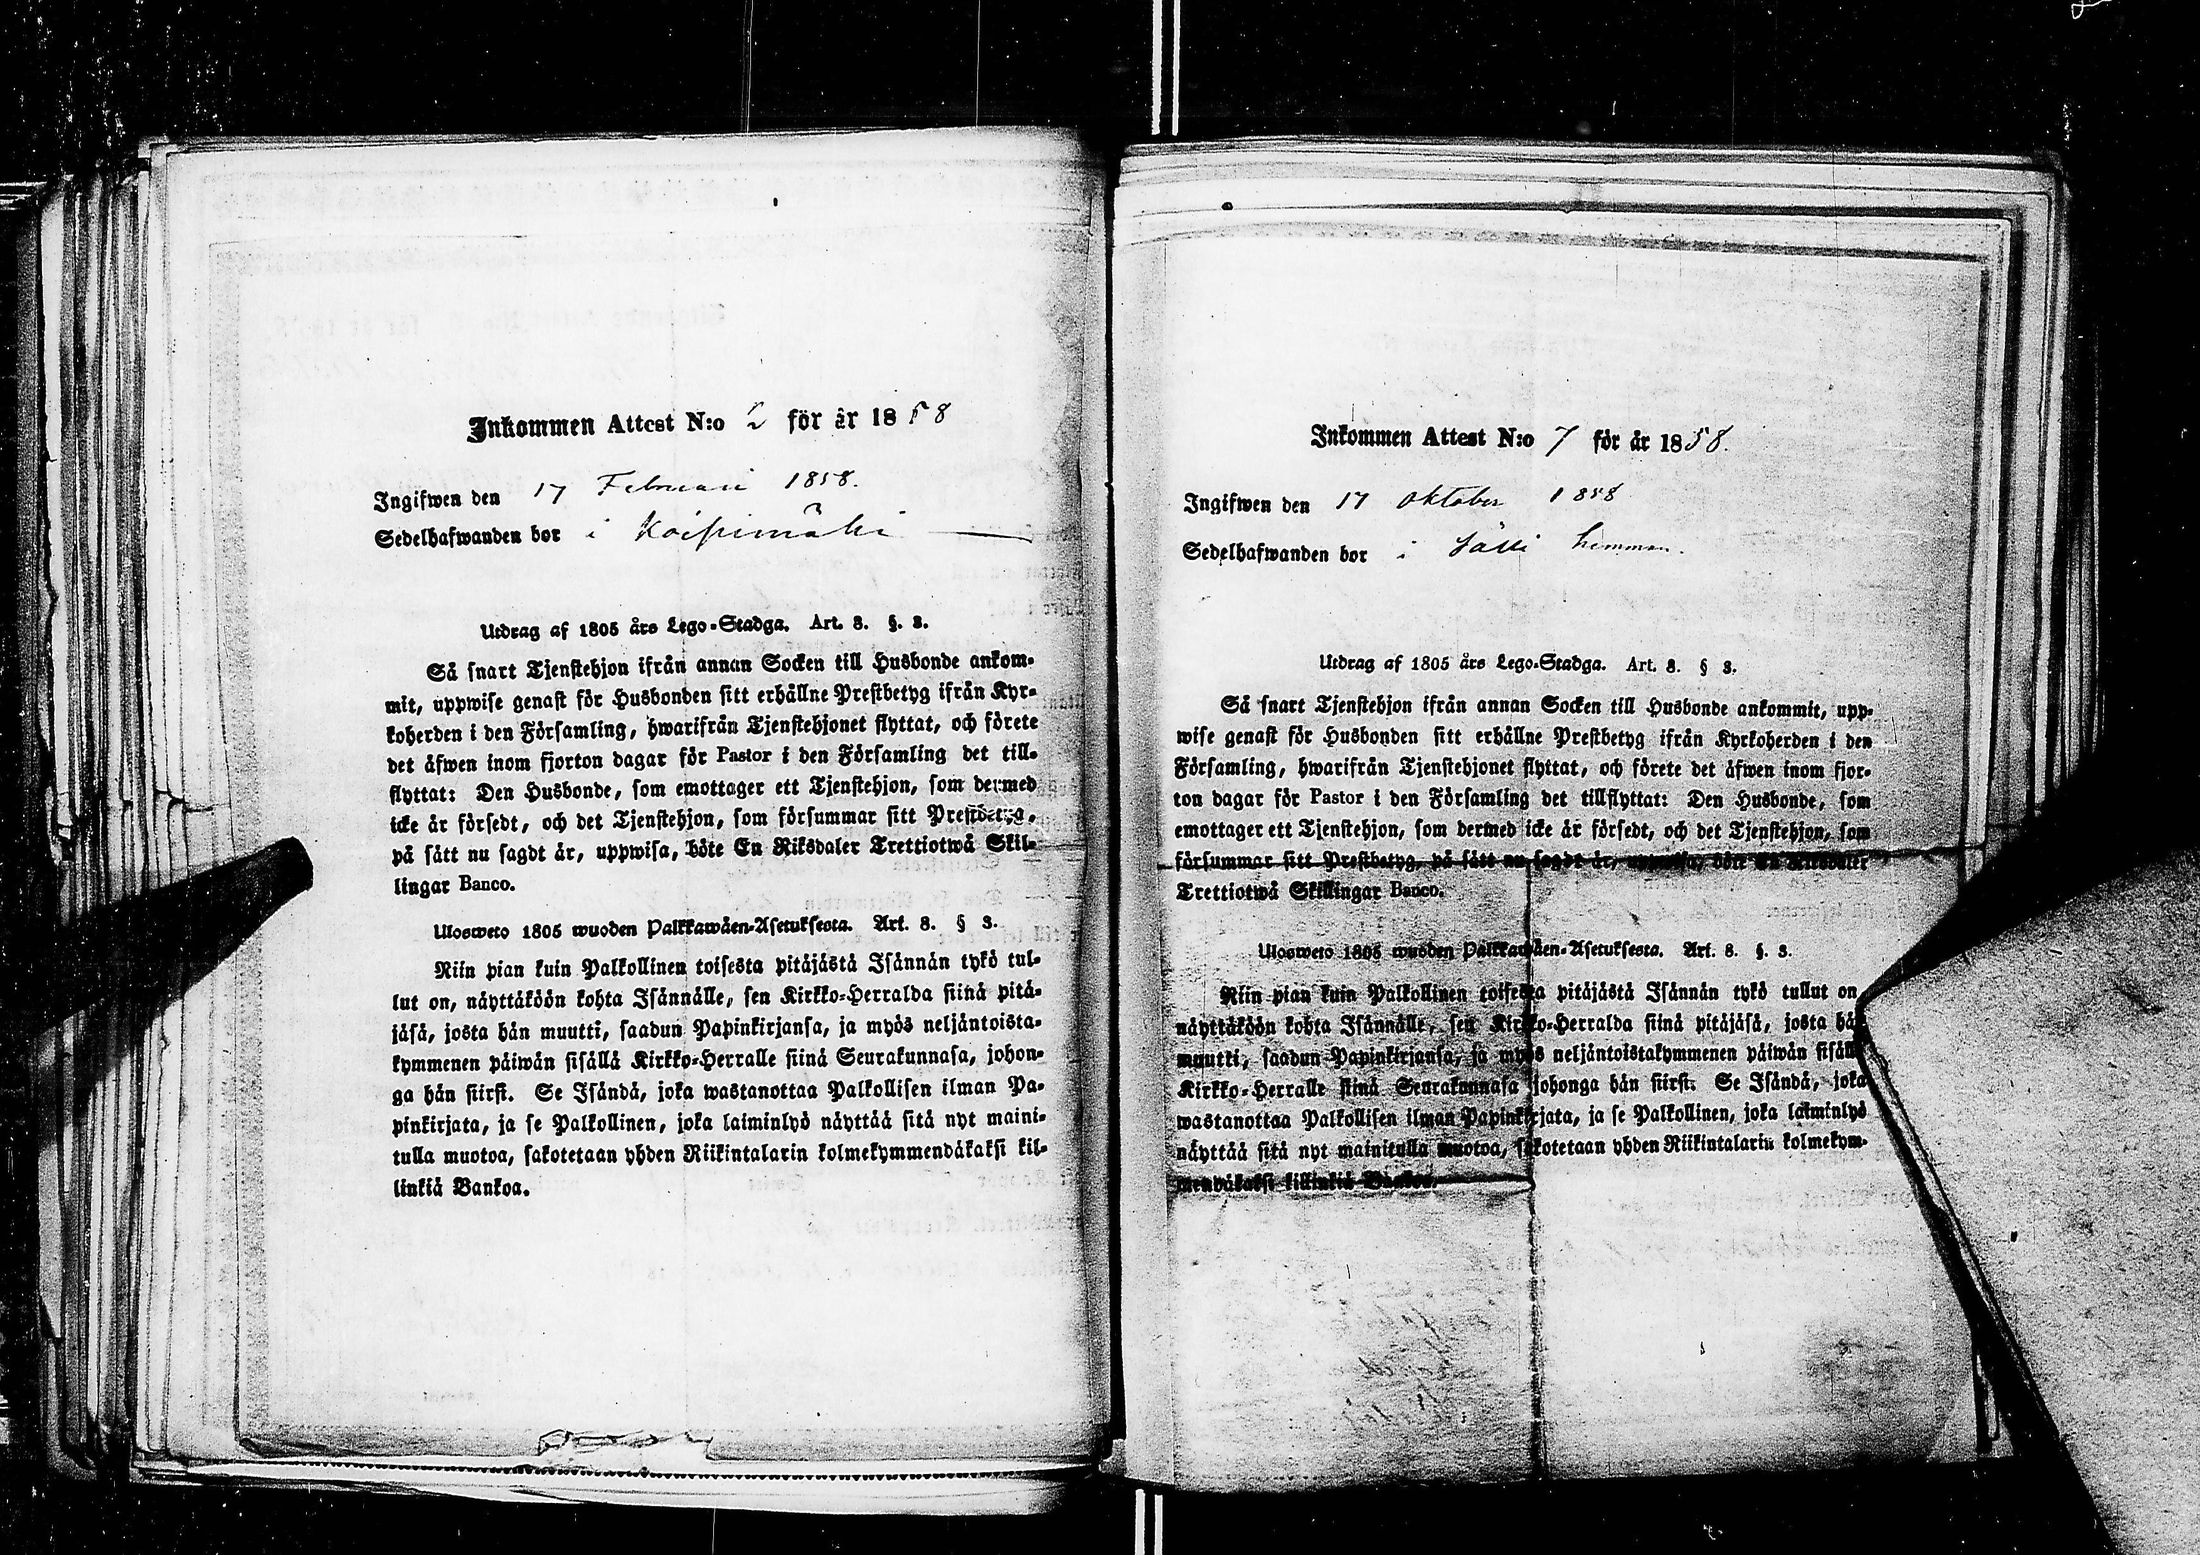 Inkommen Attest N:o 2 för år 1858
Ingifwen den 17 Februari 1858.
Sedelhafwanden bor i Koipimäki
Utdrag af 1805 års Lego-Stadga. Art. 8. §. 3.
Så snart Tjenstehjon ifrån annan Socken till Husbonde ankom-
mit, uppwise genast för Husbonden sitt erhållne Prestbetyg ifrån Kyr-
koherden i den Församling, hwarifrån Tjenstehjonet flyttat, och förete
det äfwen inom fjorton dagar för Pastor i den Församling det till-
flyttat: Den Husbonde, som emottager ett Tjenstehjon, som dermed
icke är försedt, och det Tjenstehjon, som försummar sitt Prestbetyg,
på sätt nu sagdt är, uppwisa, böte En Riksdaler Trettiotwå Skil-
lingar Banco.
Ulosweto 1805 wuoden Palkkawäen-Asetuksesta. Art. 8. § 3.
Niin pian kuin Palkollinen toisesta pitäjästä Isännän tykö tul-
lut on, näyttäköön kohta Isännälle, sen Kirkko-Herralda siinä pitä-
jäsä, josta hän muutti, saadun Papinkirjansa, ja myös neljäntoista-
kymmenen päiwän sisällä Kirkko-Herralle siinä Seurakunnasa, johon-
ga hän siirsi. Se Isändä, joka wastanottaa Palkollisen ilman Pa-
pinkirjata, ja se Palkollinen, joka laiminlyö näyttää sitä nyt maini-
tulla muotoa, sakotetaan yhden Riikintalarin kolmekymmendäkaksi kil-
linkiä Bankoa.
Inkommen Attest N:o 7 för år 1858.
Ingifwen den 17 Oktober 1858
Sedelhafwanden bor i hemman.
Utdrag af 1805 års Lego-Stadga. Art. 8. § 3.
Så snart Tjenstehjon ifrån annan Socken till Husbonde ankommit, upp-
wise genast för Husbonden sitt erhållne Prestbetyg ifrån Kyrkoherden i den
Församling, hwarifrån Tjenstehjonet flyttat, och förete det äfwen inom fjor-
ton dagar för Pastor i den Församling det tillflyttat: Den Husbonde, som
emottager ett Tjenstehjon, som dermed icke är försedt, och det Tjenstehjon, som
försummar sitt Prestbetyg, på sätt nu sagdt är, uppwisa, böte En Riksdaler
Trettiotwå Skillingar Banco.
Ulosweto 1805 wuoden Palkkawäen-Asetuksesta. Art. 8. §. 3.
Niin pian kuin Palkollinen toisesta pitäjästä Isännän tykö tullut on,
näyttäköön kohta Isännälle, sen Kirkko-Herralda siinä pitäjäsä, josta hän
muutti, saadun Papinkirjansa, ja myös neljäntoistakymmenen päiwän sisällä
Kirkko-Herralle siinä Seurakunnasa johonga hän siirsi. Se Isändä, joka
wastanottaa Palkollisen ilman Papinkirjata, ja se Palkollinen, joka laiminlyö
näyttää sitä nyt mainitulla muotoa, sakotetaan yhden Riikintalarin kolmekym-
mendäkaksi killinkiä Bankoa.